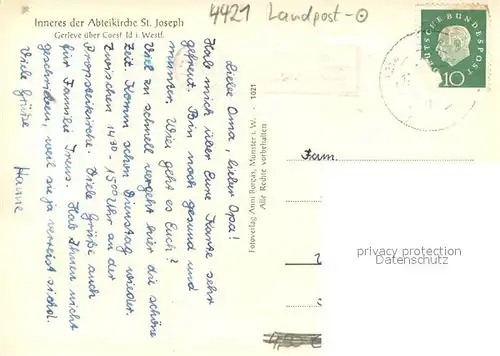 4421 Landpost-
Inneres der Abteikirche St. Joseph
Gerleve über Coesfeld i. Westf.
Liebe Oma, lieber Opa!
Hab mich über Eure Karte sehr
gefreut. Bin noch gesund und
munter. Wie geht es Euch?
Viel zu schnell vergeht hier die schöne
Zeit. Komm schon Dienstag wieder.
Zwischen 1430 - 1500 Uhr an der
Propsteikirche. Viele Grüße auch
für Familie Hab Ihnen nicht
geschrieben, weil sie ja verreist sind.
Viele Grüße
Hanne
Fotoverlag Anni Borgas, Münster i. W. 1021
Alle Rechte vorbehalten
DEUTSCHE BUNDESPOST
10
Fam.
privacy protection
Datenschutz